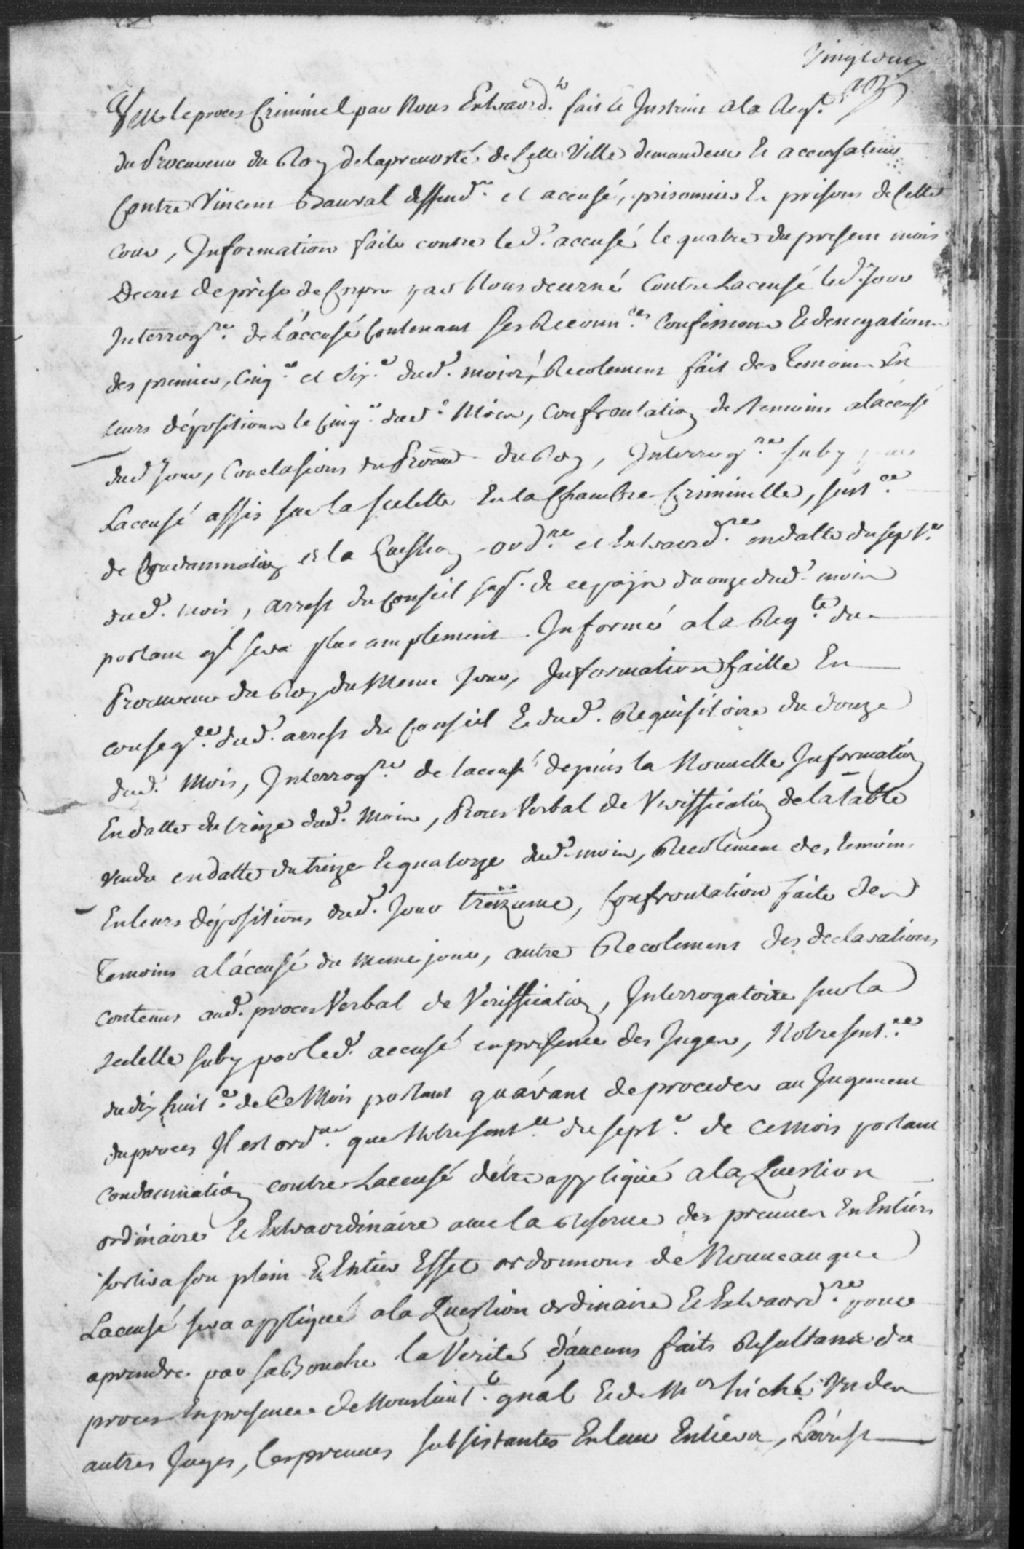 Vingtdeux
Veu le proces Criminel par Nous Extraord.t fait et Instruit a la Req.te
du Procureur du Roy de la prevosté de Cette Ville demandeur et accusateur
Contre Vincent Bauval deffend.r et accusé, prisonnier Es prisons de Cette
cour, Information faite contre led.t accusé le quatre du present mois
Decret de prise de Corps par Nous decerné Contre Laccusé led.t Jour
Interrog.re de l'accusé Contenant ses Reconn.ces confessions et denegations
des premier, Cinq.e et Six.e dud.t mois, Recolement fait des Temoins En
leurs dépositions le Cinq.e dud.t Mois, Confrontation de temoins a l'accusé
dud. Jour, Conclusions du Procur.r du Roy, Interrog.re suby par
Laccusé assis sur la scelette En la Chambre Criminelle, sent.ce
de Condamnation et la Question ord.re et Extraord.re en datte du sept.e
dud.t mois, arrest du Conseil sup.r de ce païs du onze dud.t mois
portant q'il sera plus amplement Informé a la Req.te du
Procureur du Roy du Meme Jour, Information faitte En
conseq.ce dud.t arrest du Conseil et dud.t Requisitoire du douze
dud.t Mois, Interrog.re de laccusé depuis la Nouvelle Information
En datte du treize dud.t Mois, Proces Verbal de Veriffication de la table
vendu en datte du treize et quatorze dud.t mois, Recolement des temoins
En leurs dépositions dud.t Jour treizieme, Confrontation faite des
Temoins a l'accusé du meme jour, autre Recolement des declarations
contenues aud.t proces Verbal de Veriffication, Interrogatoire sur la
scelette suby par led.t accusé en presence des Juges, Notre sent.ce
du dix huit.e de Ce Mois portant qu'avant de proceder au Jugement
du proces Il est ord.né que Notre sent.ce du sept.e de ce Mois portant
condamnation contre Laccusé d'être appliqué a la Question
ordinaire et Extraordinaire avec la Reserve des preuves En Entier
sortira son plein Et Entier Effet ordonnons de Nouveau que
Laccusé sera appliqué a la Question ordinaire Et Extraord.re pour
aprendre par sa Bouche la Verité d'aucuns faits Resultans du
proces En presence de Nous Lieut.t gnâl Et de M.r un des
autres Juges, les preuves subsistantes En leur Entier, L'arrest